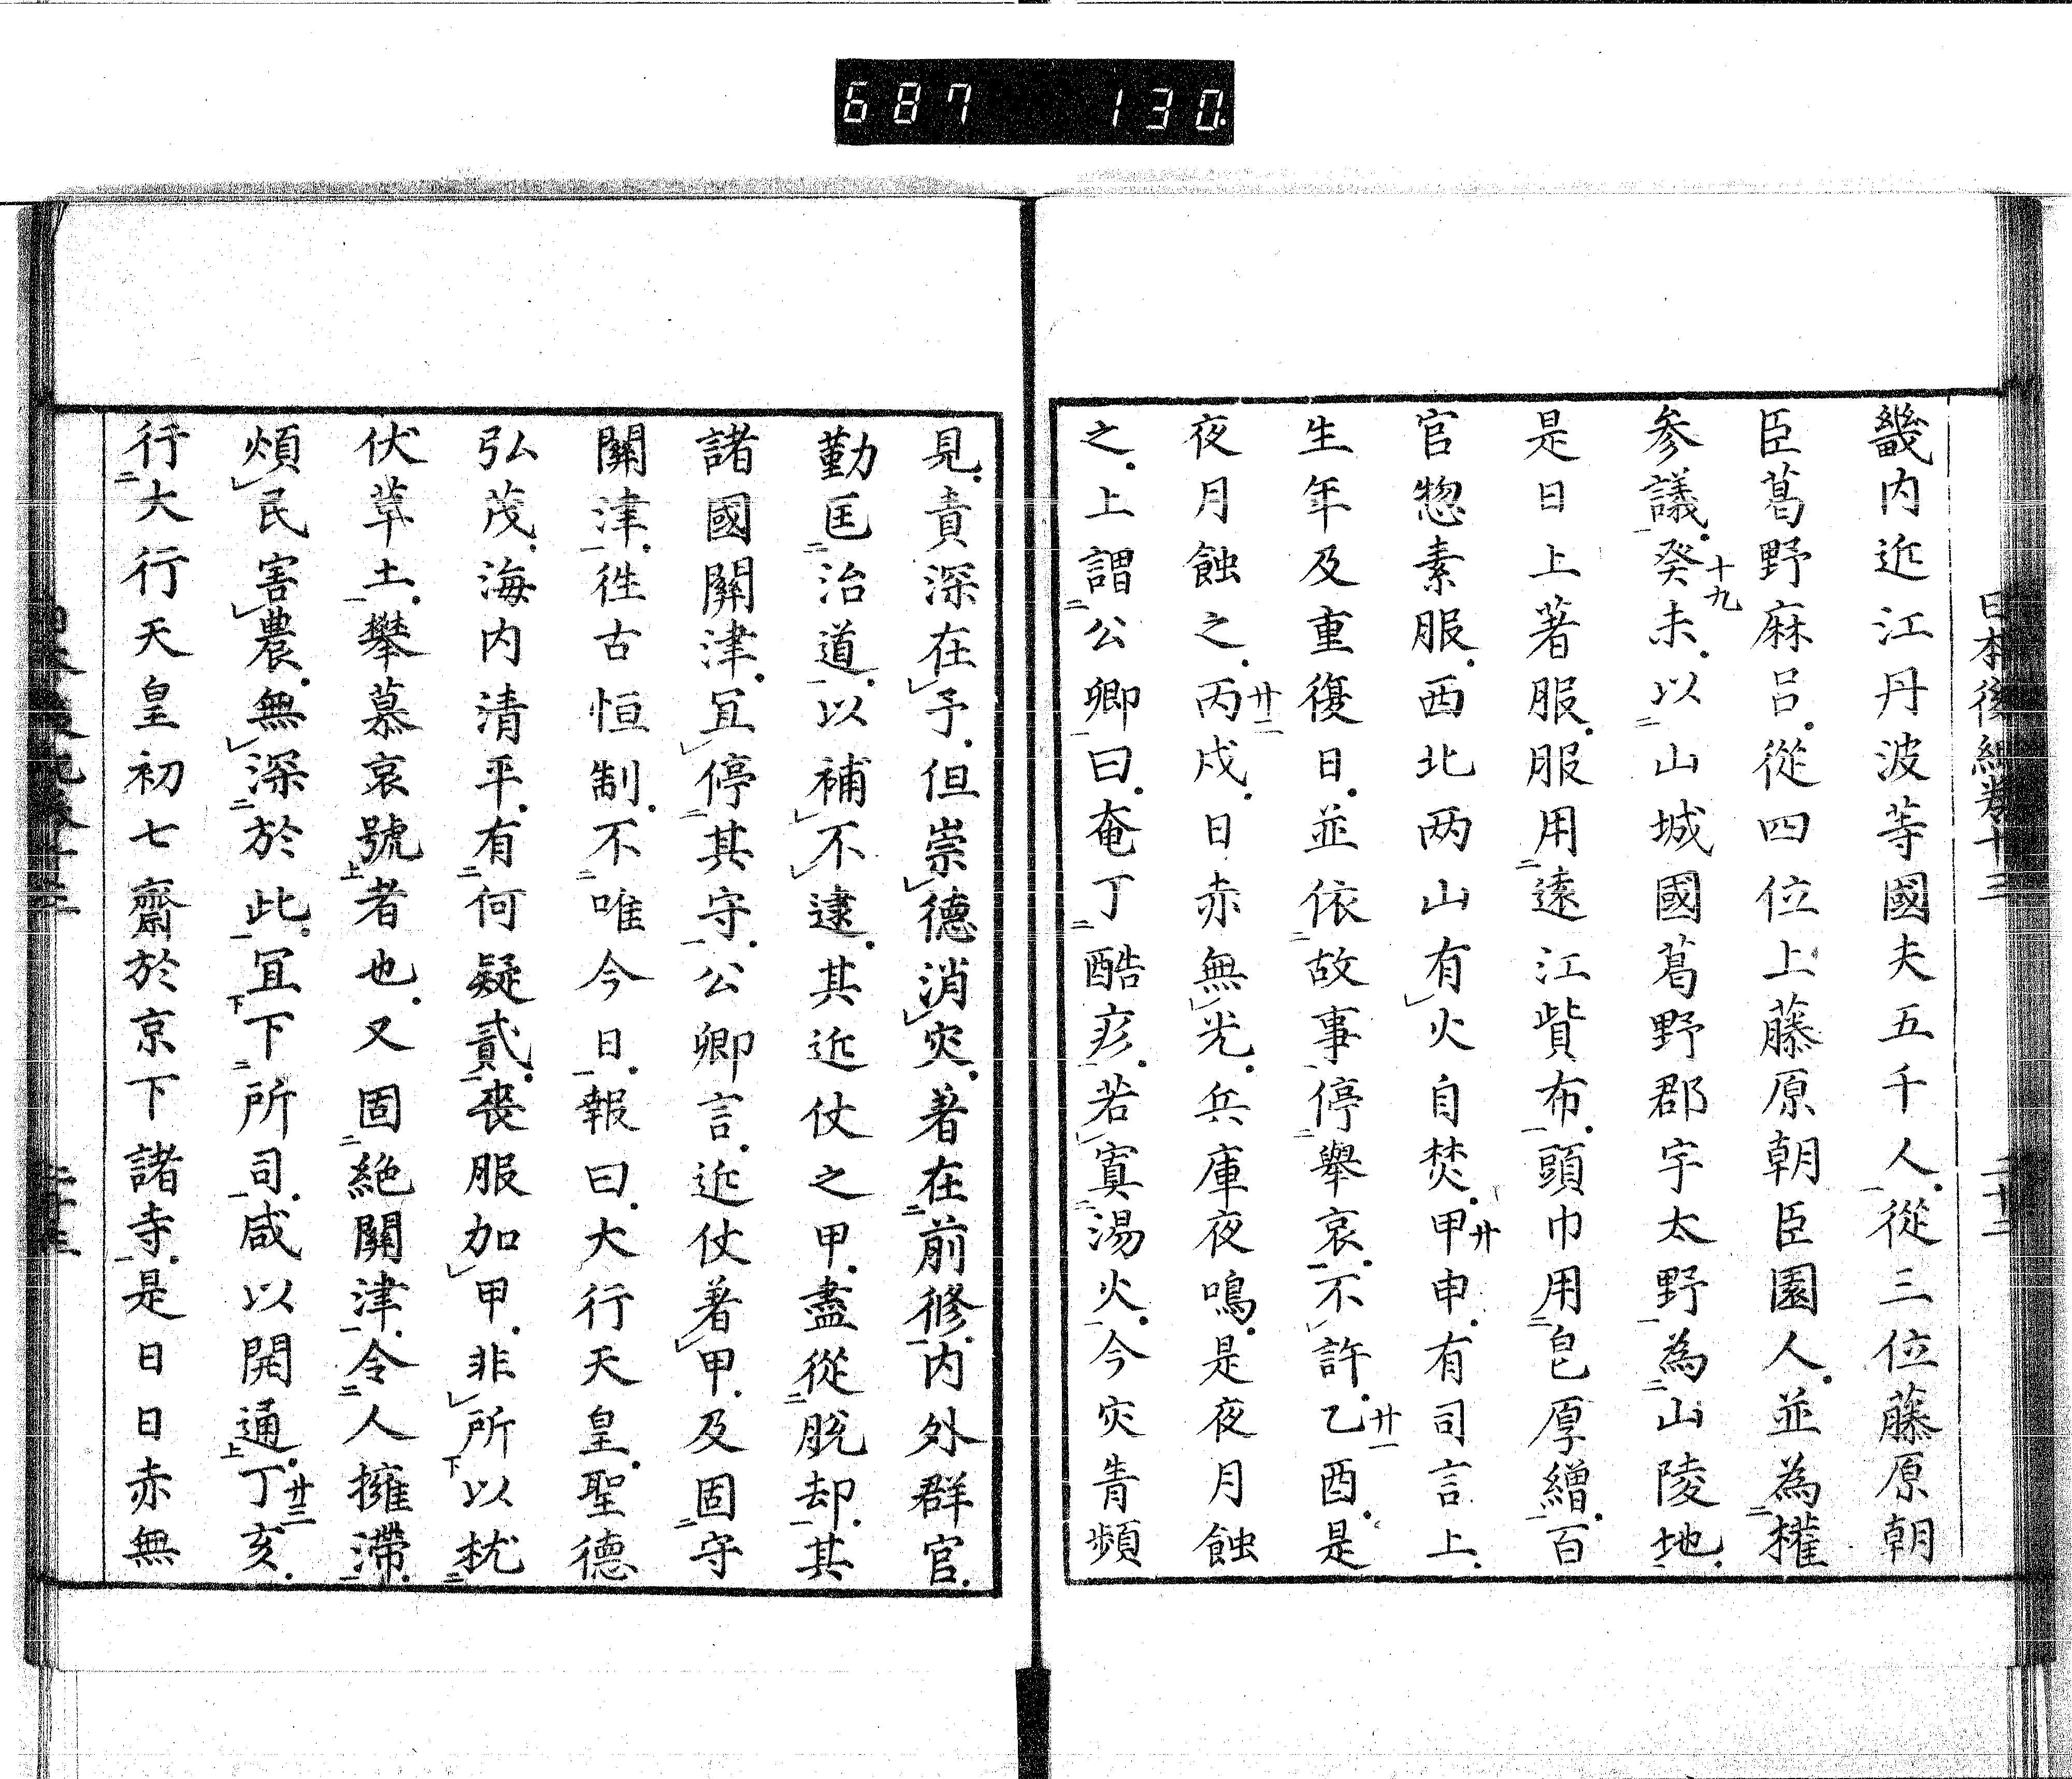 687 130
日本後紀卷十三 二十二
畿内近江丹波等國夫五千人從三位藤原朝
臣葛野麻呂從四位上藤原朝臣園人並為權
参議癸未十九以山城國葛野郡宇太野為山陵地
是日上著服服用遠江貲布頭巾用皂厚繒百
官惣素服西北两山有火自焚甲申廿有司言上
生年及重復日並依故事停舉哀不許乙酉廿一是
夜月蝕之丙戌廿二日赤無光兵庫夜鳴是夜月蝕
之上謂公卿曰奄丁酷疚若寘湯火今灾眚頻
見責深在予但崇德消灾著在前修内外群官
勤匡治道以補不逮其近仗之甲盡從脱却其
諸國關津冝停其守公卿言近仗著甲及固守
關津徃古恒制不唯今日報曰大行天皇聖德
弘茂海内清平有何疑貳喪服加甲非所以枕
伏草土攀慕哀號者也又固絶關津令人擁滯
煩民害農無深於此冝下所司咸以開通丁亥廿三
行大行天皇初七齋於京下諸寺是日日赤無